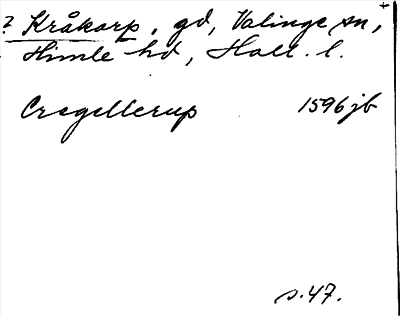 ? Kråkarp, gd, Valinge sn,
Himle hd, Hall. l.
Cregellerup 1596 jb
s. 47.